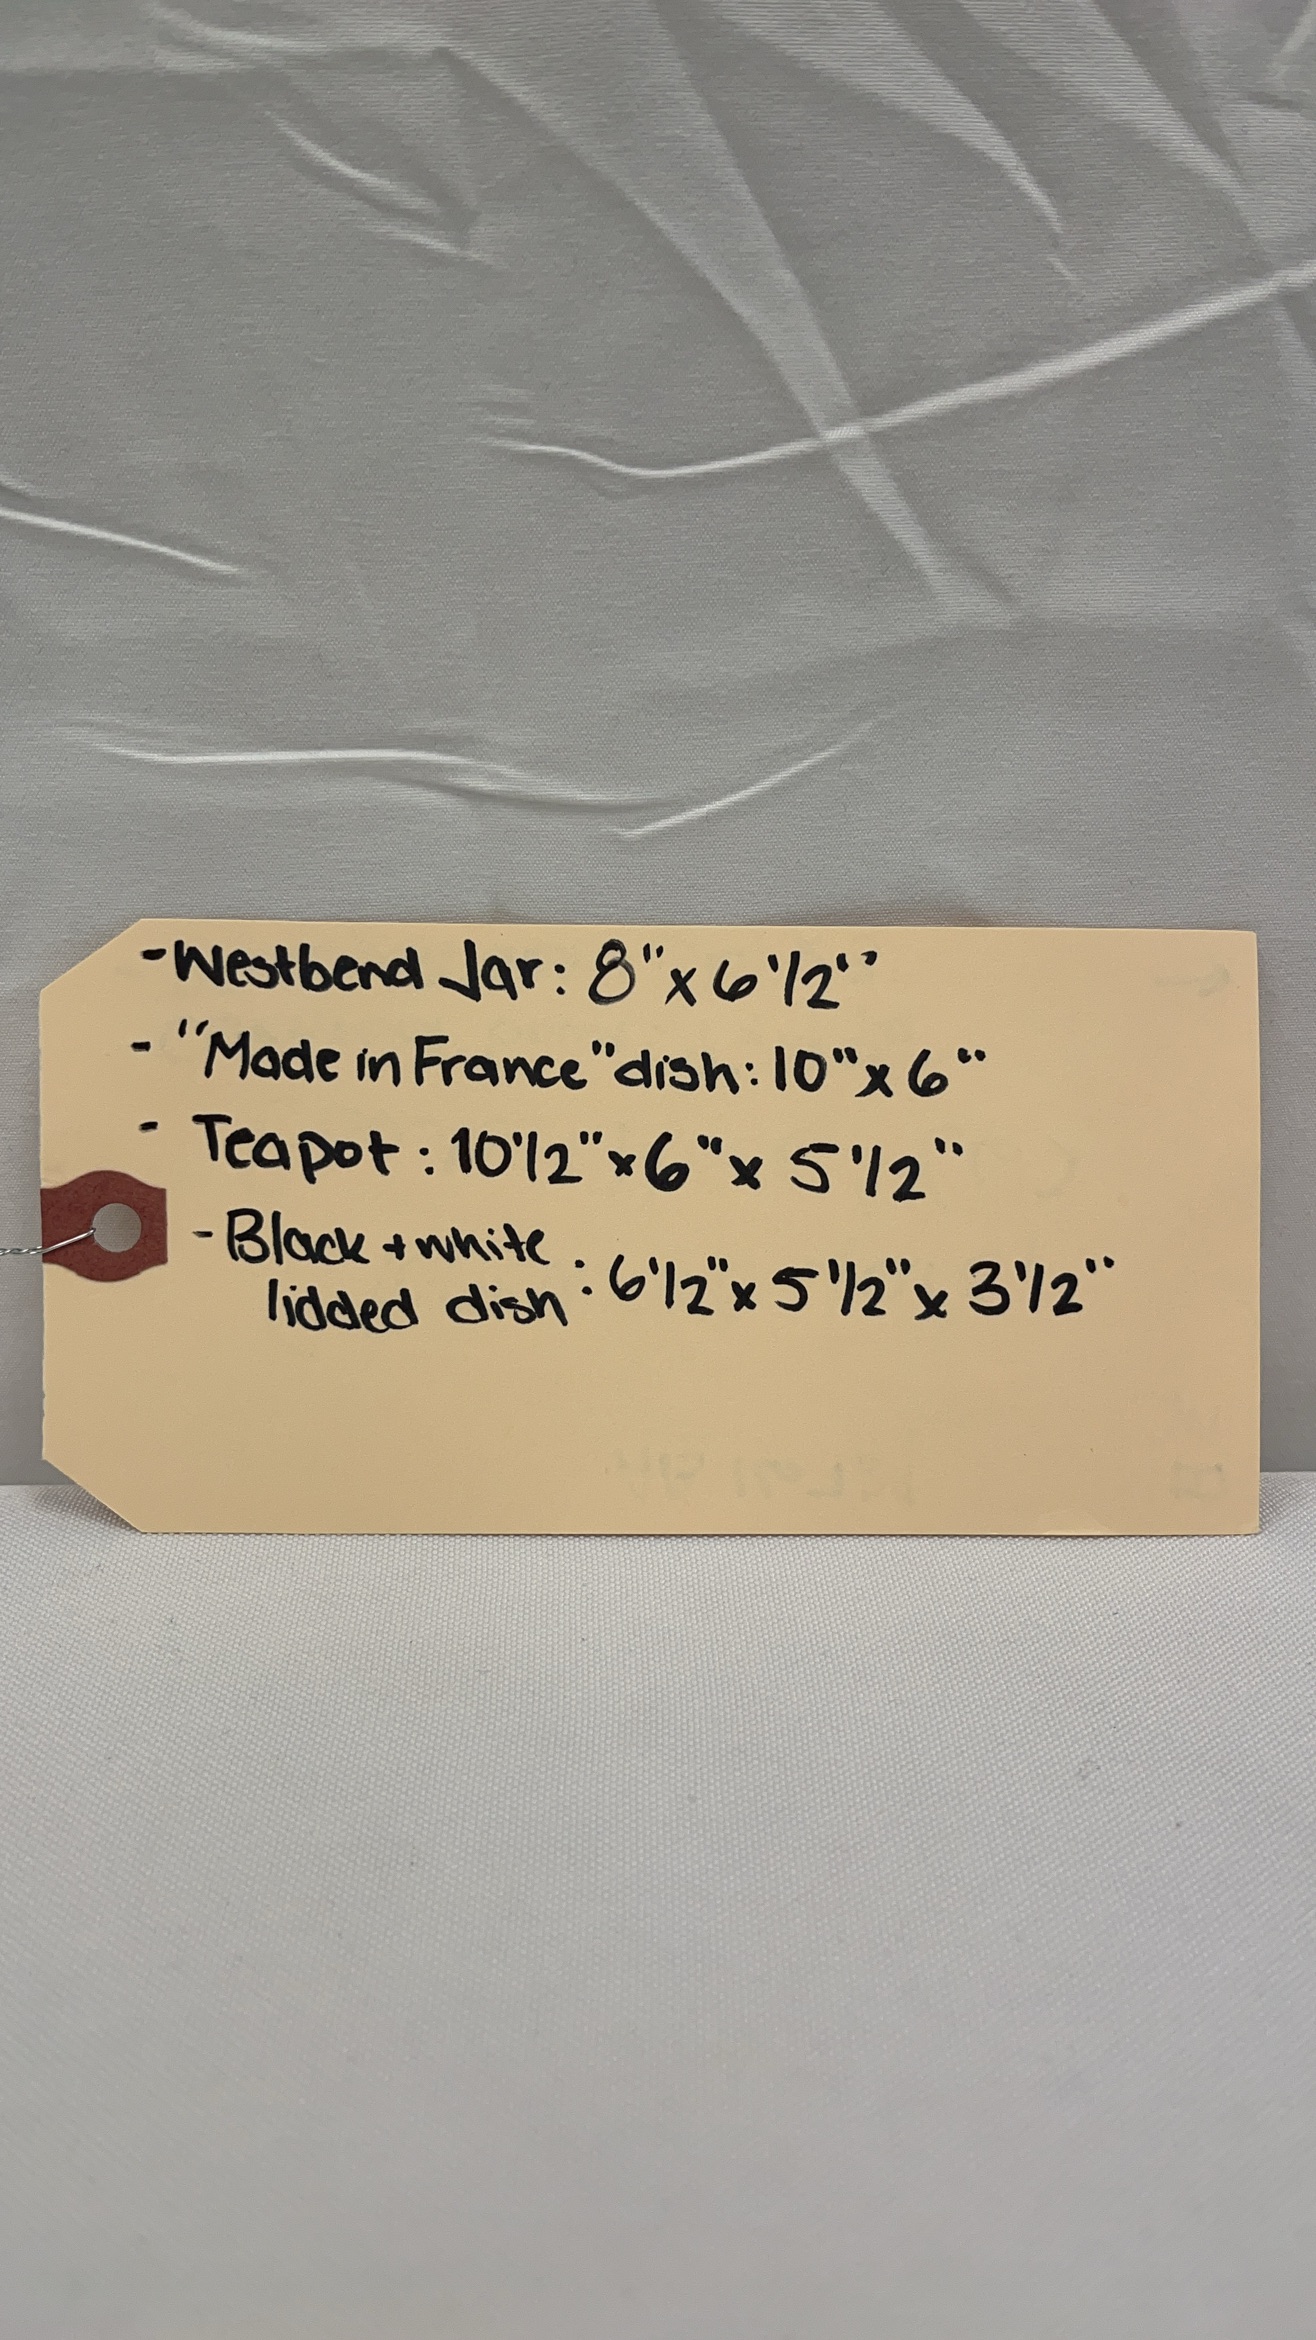 -Westbend Jar: 8" x 6 1/2"
- "Made in France" dish: 10" x 6"
- Teapot: 10 1/2" x 6" x 5 1/2"
- Black + white
lidded dish : 6 1/2" x 5 1/2" x 3 1/2"